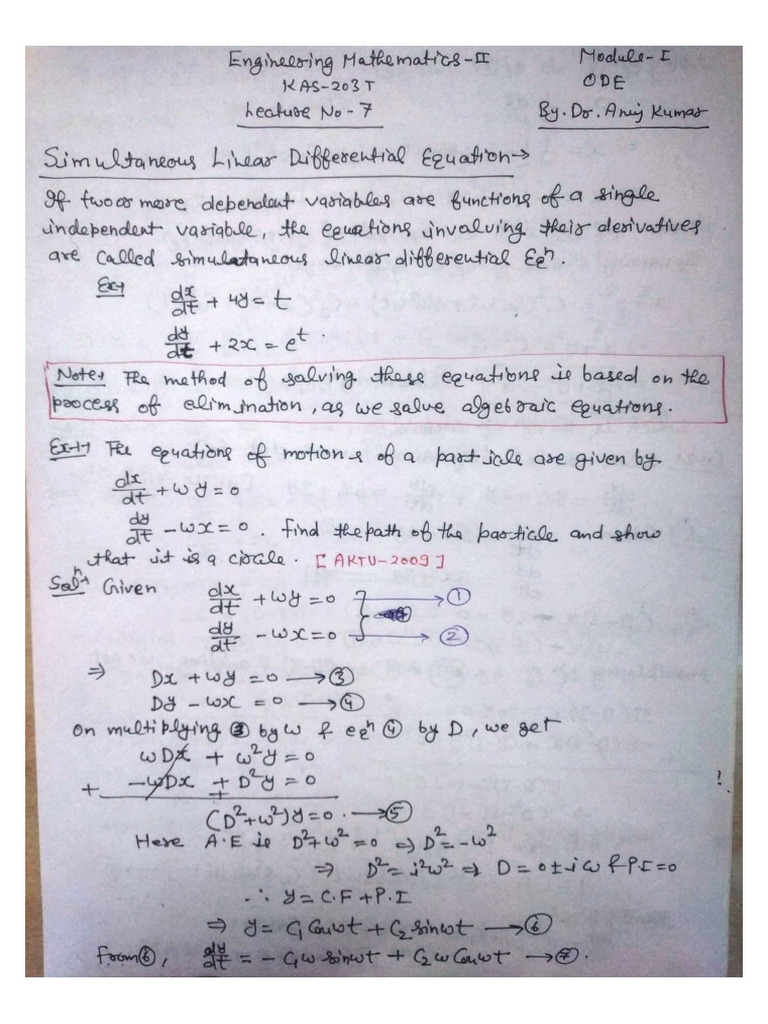 Engineering Mathematics-II Module-I
KAS-203T ODE
Lecture No-7 By. Dr. Anuj Kumar
Simultaneous Linear Differential Equation→
If two or more dependent variables are functions of a single
independent variable, the equations involving their derivatives
are called simulataneous linear differential Eqⁿ.
Ex→ dx/dt + 4y = t
dy/dt + 2x = e^t
Note→ The method of solving these equations is based on the
process of elimination, as we solve algebraic equations.
Ex-1→ The equations of motions of a particle are given by
dx/dt + ωy = 0
dy/dt - ωx = 0. Find the path of the particle and show
that it is a circle. [AKTU-2009]
Solⁿ→ Given dx/dt + ωy = 0 → ①
dy/dt - ωx = 0 → ②
⇒ Dx + ωy = 0 → ③
Dy - ωx = 0 → ④
On multiplying ③ by ω & eqⁿ ④ by D, we get
ωDx + ω²y = 0
+ -ωDx + D²y = 0
(D²+ω²)y = 0. → ⑤
Here A.E is D²+ω² = 0 ⇒ D² = -ω²
⇒ D² = i²ω² ⇒ D = 0 ± iω & P.I = 0
∴ y = C.F + P.I
⇒ y = C₁ Cosωt + C₂ sinωt → ⑥
From ⑥, dy/dt = - C₁ω sinωt + C₂ω Cosωt → ⑦.